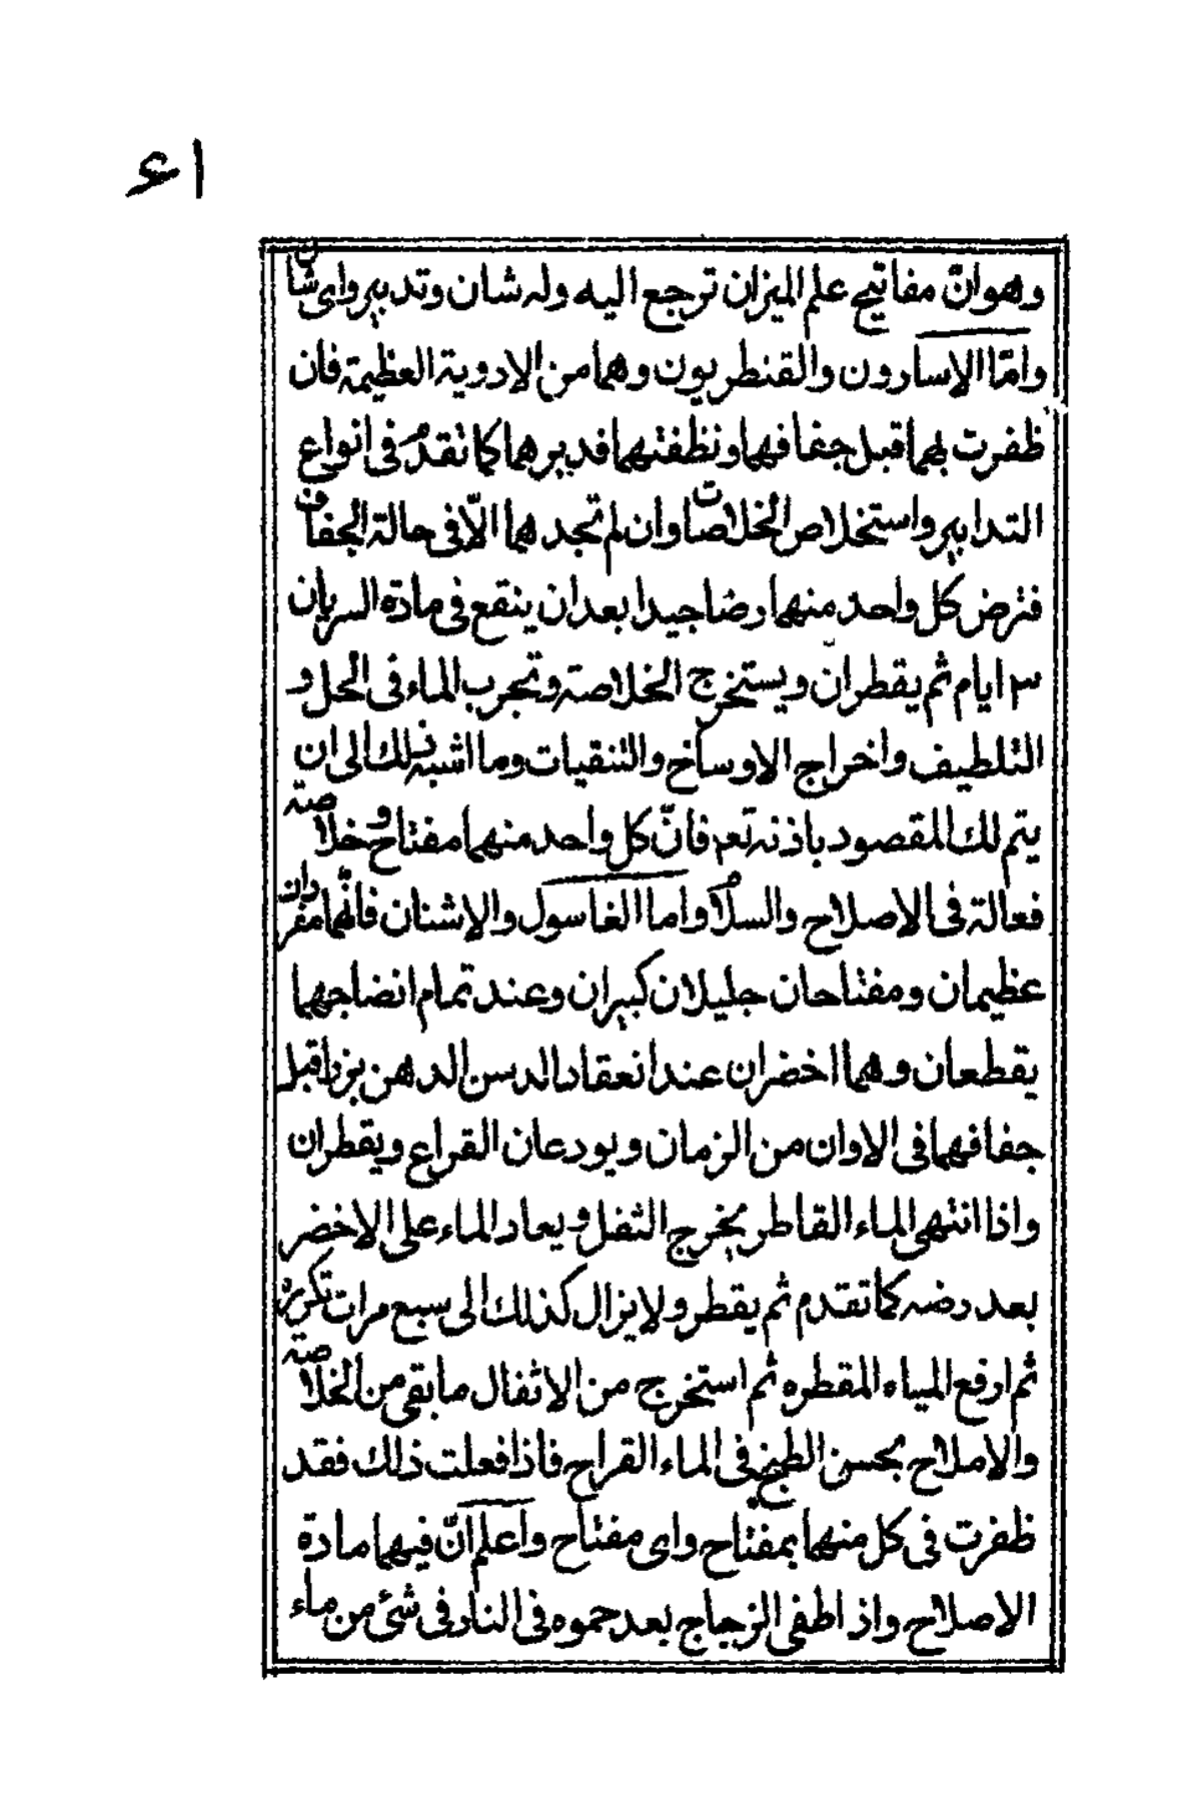 ٤١
وهو انّ مفاتيح علم الميزان ترجع اليه وله شان وتدبير واى شان
وامّا الاسارون والقنطريون وهما من الادوية العظيمة فان
ظفرت بهما قبل جفافهما ونظفتهما فدبرهما كما تقدم فى انواع
التدابير واستخلاص الخلاصات وان لم تجدهما الّا فى حالة الجفاف
فترض كل واحد منهما رضا جيدا بعد ان ينقع فى مادة السريان
٣ ايام ثم يقطران ويستخرج الخلاصة وتجرب الماء فى الحل و
التلطيف واخراج الاوساخ والتنقيات وما اشبه ذلك الى ان
يتم لك المقصود باذنه تعم فانّ كل واحد منهما مفتاح وخلاصة
فعالة فى الاصلاح والسلام واما الغاسول والاشنان فانّهما مفردان
عظيمان ومفتاحان جليلان كبيران وعند تمام انضاجهما
يقطعان وهما اخضران عند انعقاد الدسن الدهن بزرا قبل
جفافهما فى الاوان من الزمان ويودعان القراع ويقطران
واذا انتهى الماء القاطر يخرج الثفل ويعاد الماء على الاخضر
بعد رضه كما تقدم ثم يقطر ولا يزال كذلك الى سبع مرات تكرره
ثم ارفع المياه المقطره ثم استخرج من الاثفال ما بقى من الخلاصة
والاملاح بحسن الطبخ فى الماء القراح فاذا فعلت ذلك فقد
ظفرت فى كل منهما بمفتاح واى مفتاح واعلم انّ فيهما مادة
الاصلاح واذا طفى الزجاج بعد حموه فى النار فى شئ من ماء